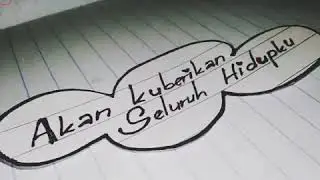 Akan kuberikan
Seluruh Hidupku